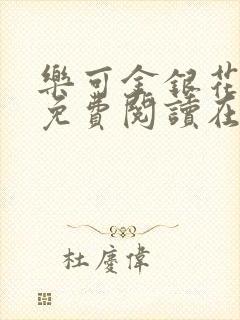 樂可金銀花
免費閱讀在
杜慶偉